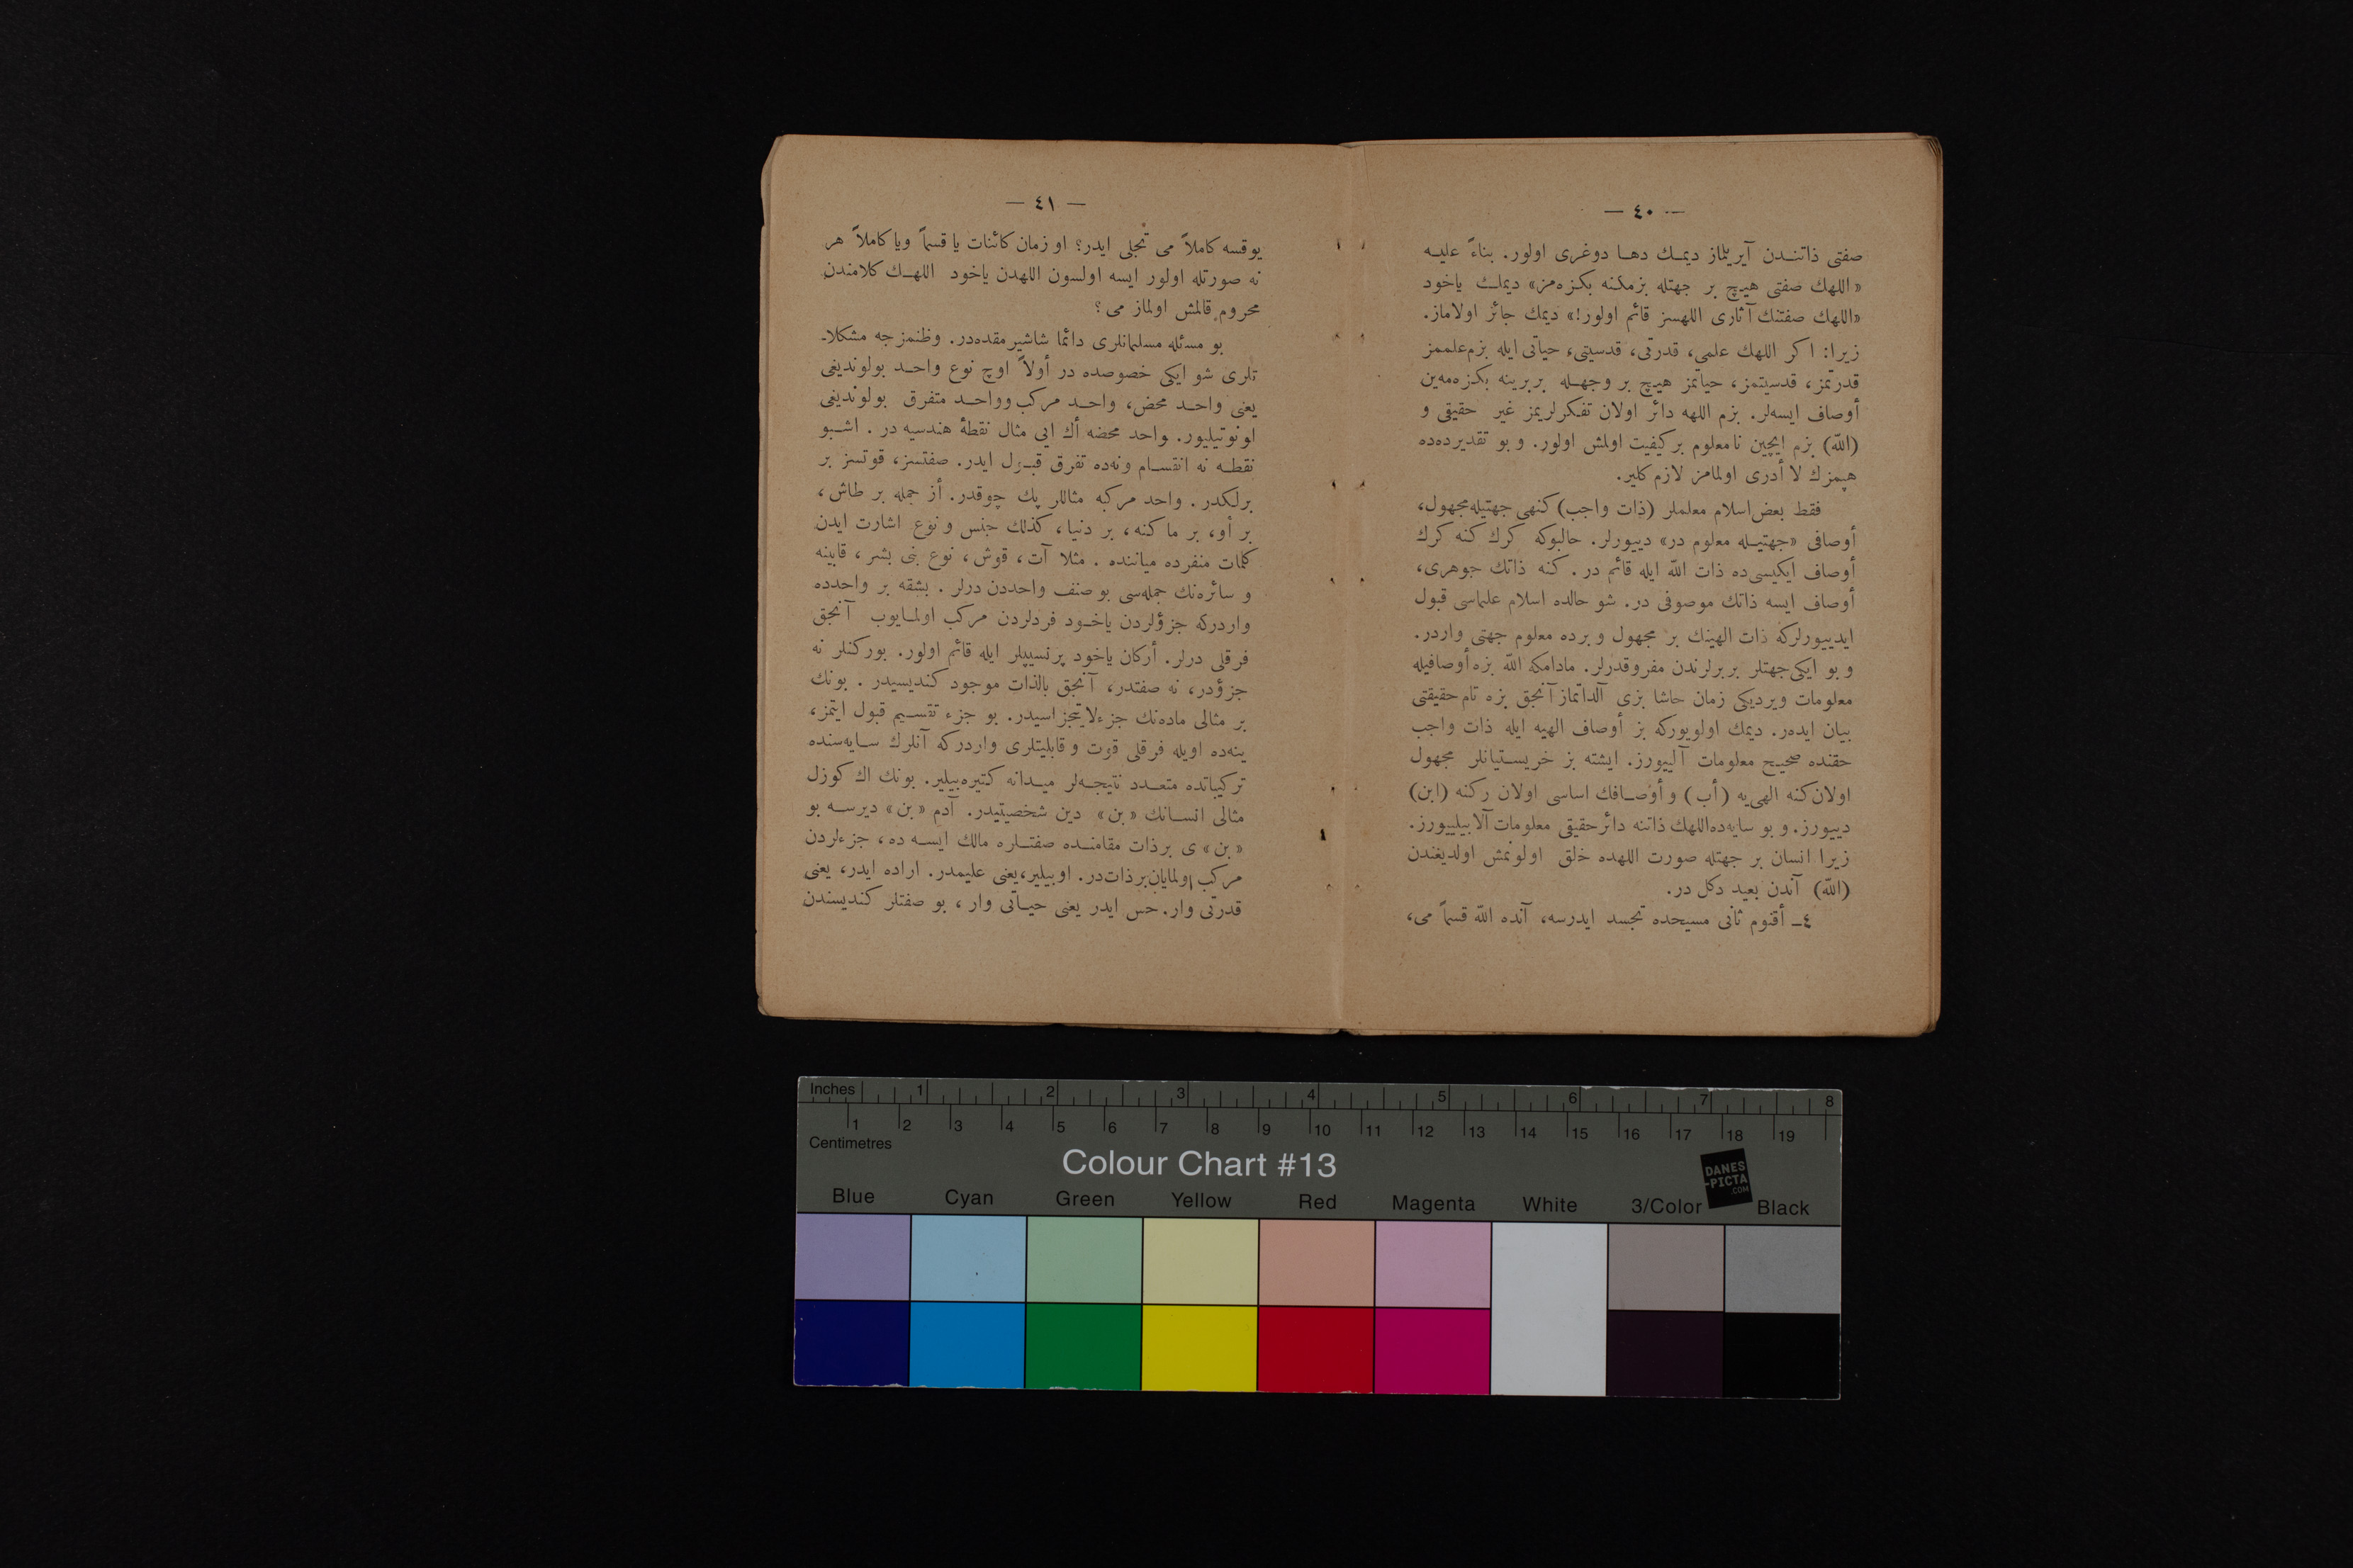 — ٤٠ —
صفتی ذاتنـدن آیریلماز دیمـك دهـا دوغری اولور. بناءً علیـه
«اللهك صفتی هیچ بر جهتله بزمكنه بكزه‌مز» دیملـك یاخود
«اللهك صفتنك آثاری اللهسز قائم اولور!» دیمك جائز اولاماز.
زیرا: اكر اللهك علمی، قدرتی، قدسیتی، حیاتی ایله بزم علممز
قدرتمز، قدسیتمز، حیاتمز هیچ بر وجهـله بربرینه بكزه‌مه‌ین
أوصاف ایسه‌لر. بزم اللهه دائر اولان تفكرلریمز غیر حقیقی و
(الله) بزم ایچین نامعلوم بر كیفیت اولمش اولور. و بو تقدیرده‌ده
هپمزك لا أدری اولمامز لازم كلیر.
فقط بعض اسلام معلملر (ذات واجب) كنهی جهتیله مجهول،
أوصافی «جهتیـله معلوم در» دییورلر. حالبوكه كرك كنه كرك
أوصاف ایكیسی‌ده ذات الله ایله قائم در. كنه ذاتك جوهری،
أوصاف ایسه ذاتك موصوفی در. شو حالده اسلام علماسی قبول
ایدییورلركه ذات الهینك بر مجهول و برده معلوم جهتی واردر.
و بو ایكی جهتلر بربرلرندن مفروقدرلر. مادامكه الله بزه أوصافیله
معلومات ویردیكی زمان حاشا بزی آلداتماز آنجق بزه تام حقیقتی
بیان ایده‌ر. دیمك اولویوركه بز أوصاف الهیه ایله ذات واجب
حقنده صحیح معلومات آلییورز. ایشته بز خریسـتیانلر مجهول
اولان كنه الهی‌یه (أب) و أوصـافك اساسی اولان ركنه (ابن)
دییورز. و بو سایه‌ده اللهك ذاتنه دائر حقیقی معلومات آلابیلییورز.
زیرا انسان بر جهتله صورت اللهده خلق اولونمش اولدیغندن
(الله) آندن بعید دكل در.
٤ـ أقنوم ثانی مسیحده تجسد ایدرسه، آنده الله قسماً می،
— ٤١ —
یوقسه كاملاً می تجلی ایدر؟ او زمان كائنات یا قسماً ویا كاملاً هر
نه صورتله اولور ایسه اولسون اللهدن یاخود اللهـك كلامندن
محروم قالمش اولماز می؟
بو مسئله مسلمانلری دائما شاشیرمقده‌در. وظنمزجه مشكلا‍ـ
تلری شو ایكی خصوصده در أولاً اوچ نوع واحـد بولوندیغی
یعنی واحـد محض، واحـد مركب وواحـد متفرق بولوندیغی
اونوتیلیور. واحد محضه أك ایی مثال نقطهٔ هندسیه در. اشـبو
نقطـه نه انقسـام ونه‌ده تفرق قبـول ایدر. صفتسز، قوتسز بر
برلكدر. واحد مركبه مثاللر پك چوقدر. أز جمله بر طاش،
بر أو، بر ماكنه، بر دنیا، كذلك جنس و نوع اشارت ایدن
كلمات منفرده میاننده. مثلا آت، قوش، نوع بنی بشر، قابینه
و سائره‌نك جمله‌سی بو صنف واحددن درلر. بشقه بر واحدده
واردركه جزؤلردن یاخـود فردلردن مركب اولمـایوب آنجق
فرقلی درلر. أركان یاخود پرنسیپلر ایله قائم اولور. بوركنلر نه
جزؤدر، نه صفتدر، آنجق بالذات موجود كندیسیدر. بونك
بر مثالی ماده‌نك جزء لایتجزاسیدر. بو جزء تقسـیم قبول ایتمز،
ینه‌ده اویله فرقلی قوت و قابلیتلری واردركه آنلرك سـایه‌سنده
تركیباتده متعـدد نتیجـه‌لر میـدانه كتیره‌بیلیر. بونك اك كوزل
مثالی انسـانك «بن» دین شخصیتیدر. آدم «بن» دیرسـه بو
«بن» ی برذات مقامنـده صفتـلره مالك ایسـه ده، جزءلردن
مركب اولمایان برذات‌در. اوبیلیر، یعنی علیمدر. اراده ایدر، یعنی
قدرتی وار. حس ایدر یعنی حیـاتی وار، بو صفتلر كندیسندن
Inches 1 2 3 4 5 6 7 8
1 2 3 4 5 6 7 8 9 10 11 12 13 14 15 16 17 18 19
Centimetres
Colour Chart #13
DANES
-PICTA
.COM
Blue Cyan Green Yellow Red Magenta White 3/Color Black